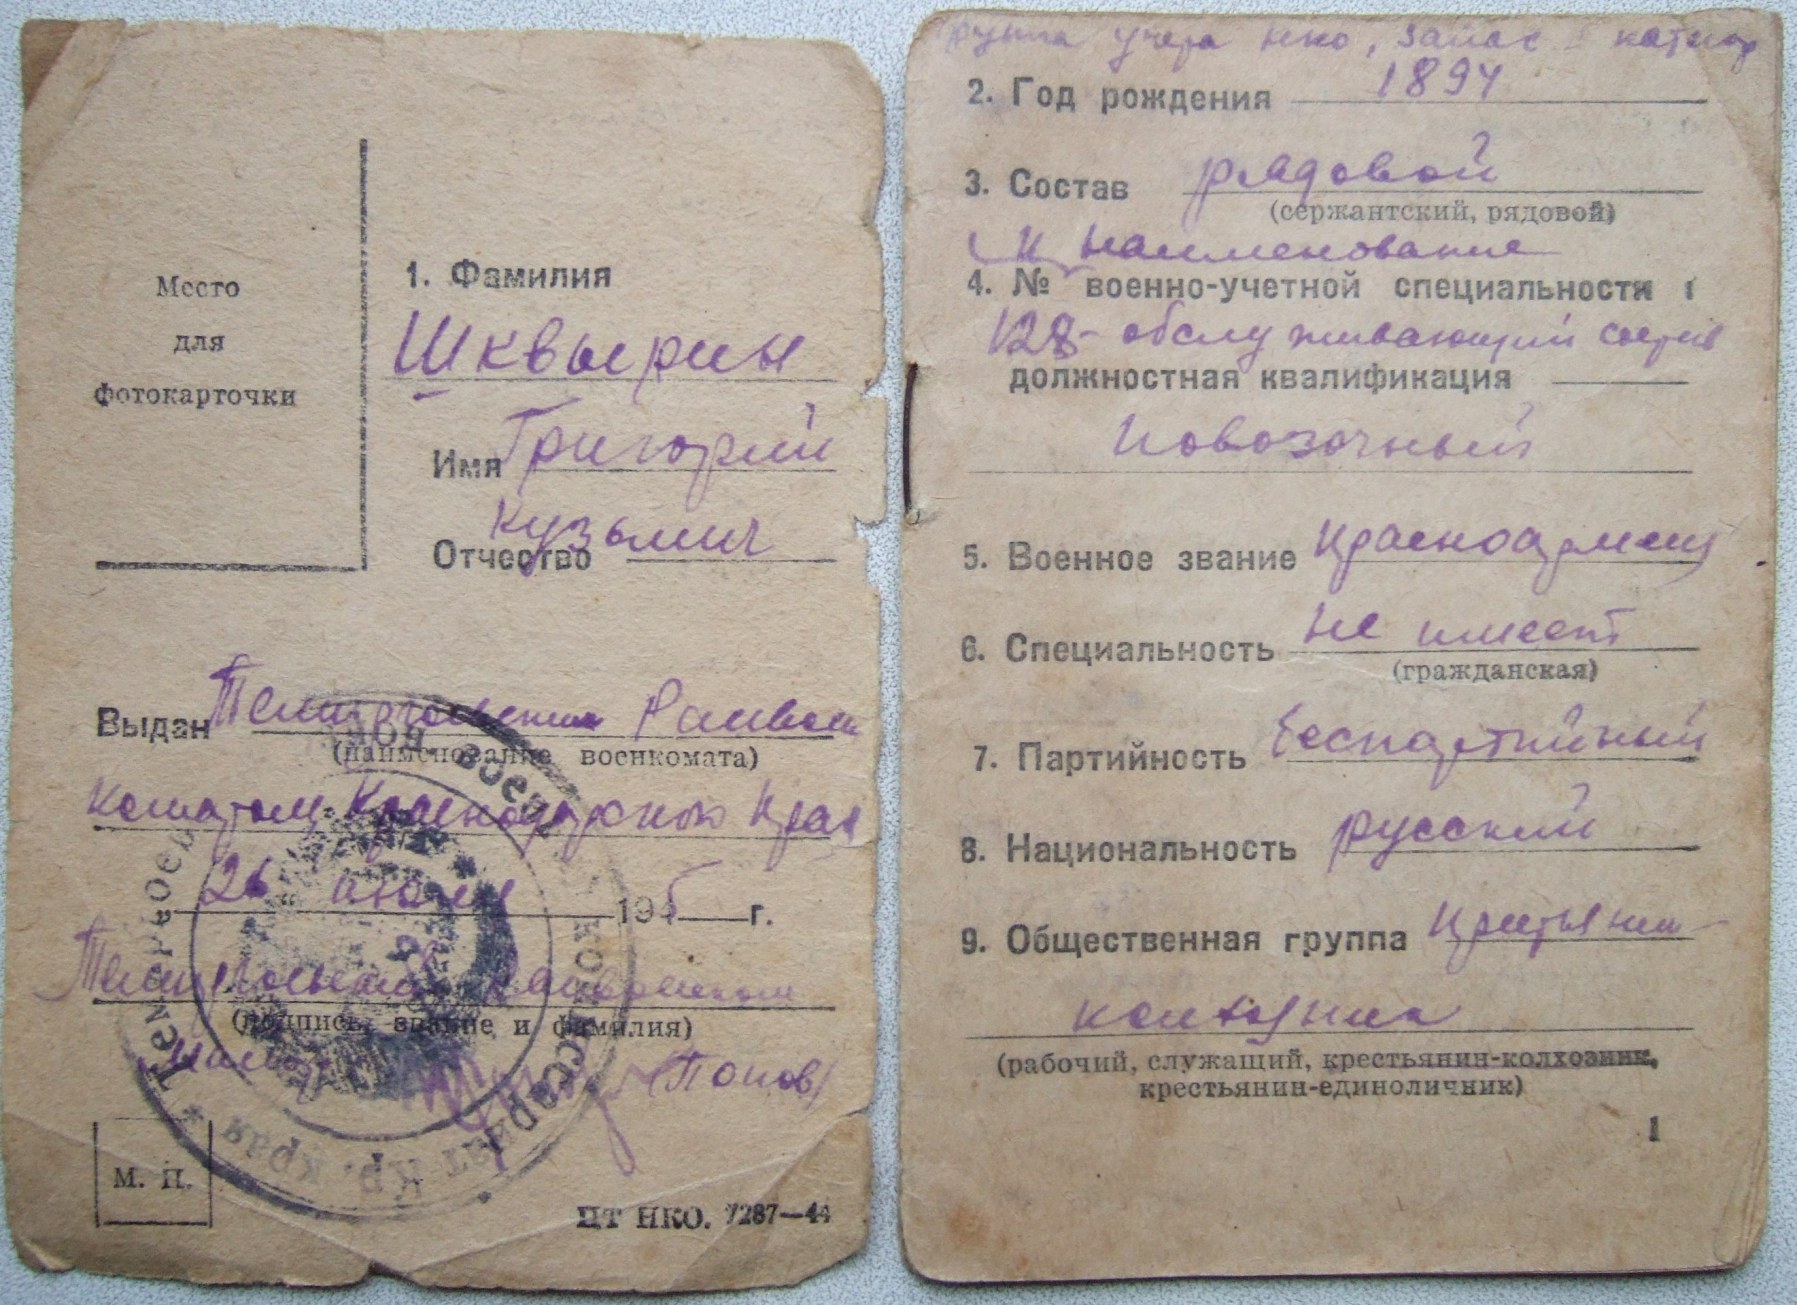 Место
для
фотокарточки
1. Фамилия
Шквырин
Имя Григорий
Отчество Кузьмич
Выдан Темиргоевским Райвоен
(наименование военкомата)
коматом Краснодарского Края
26 июля 1945 г.
Темиргоевский Райвоенком
(подпись, звание и фамилия)
(Попов)
М. П.
ЦТ НКО. 7287—44
Группа учета НКО, запас
2. Год рождения 1894
3. Состав рядовой
(сержантский, рядовой)
и наименование
4. № военно-учетной специальности
128- обслуживающий состав
должностная квалификация
повозочный
5. Военное звание красноармеец
6. Специальность не имеет
(гражданская)
7. Партийность беспартийный
8. Национальность русский
9. Общественная группа крестьянин-
колхозник
(рабочий, служащий, крестьянин-колхозник,
крестьянин-единоличник)
1